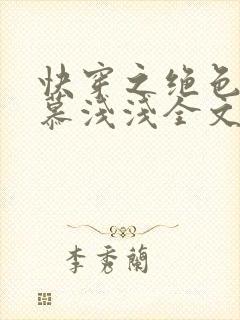 快穿之绝色
慕浅浅全文
李秀蘭